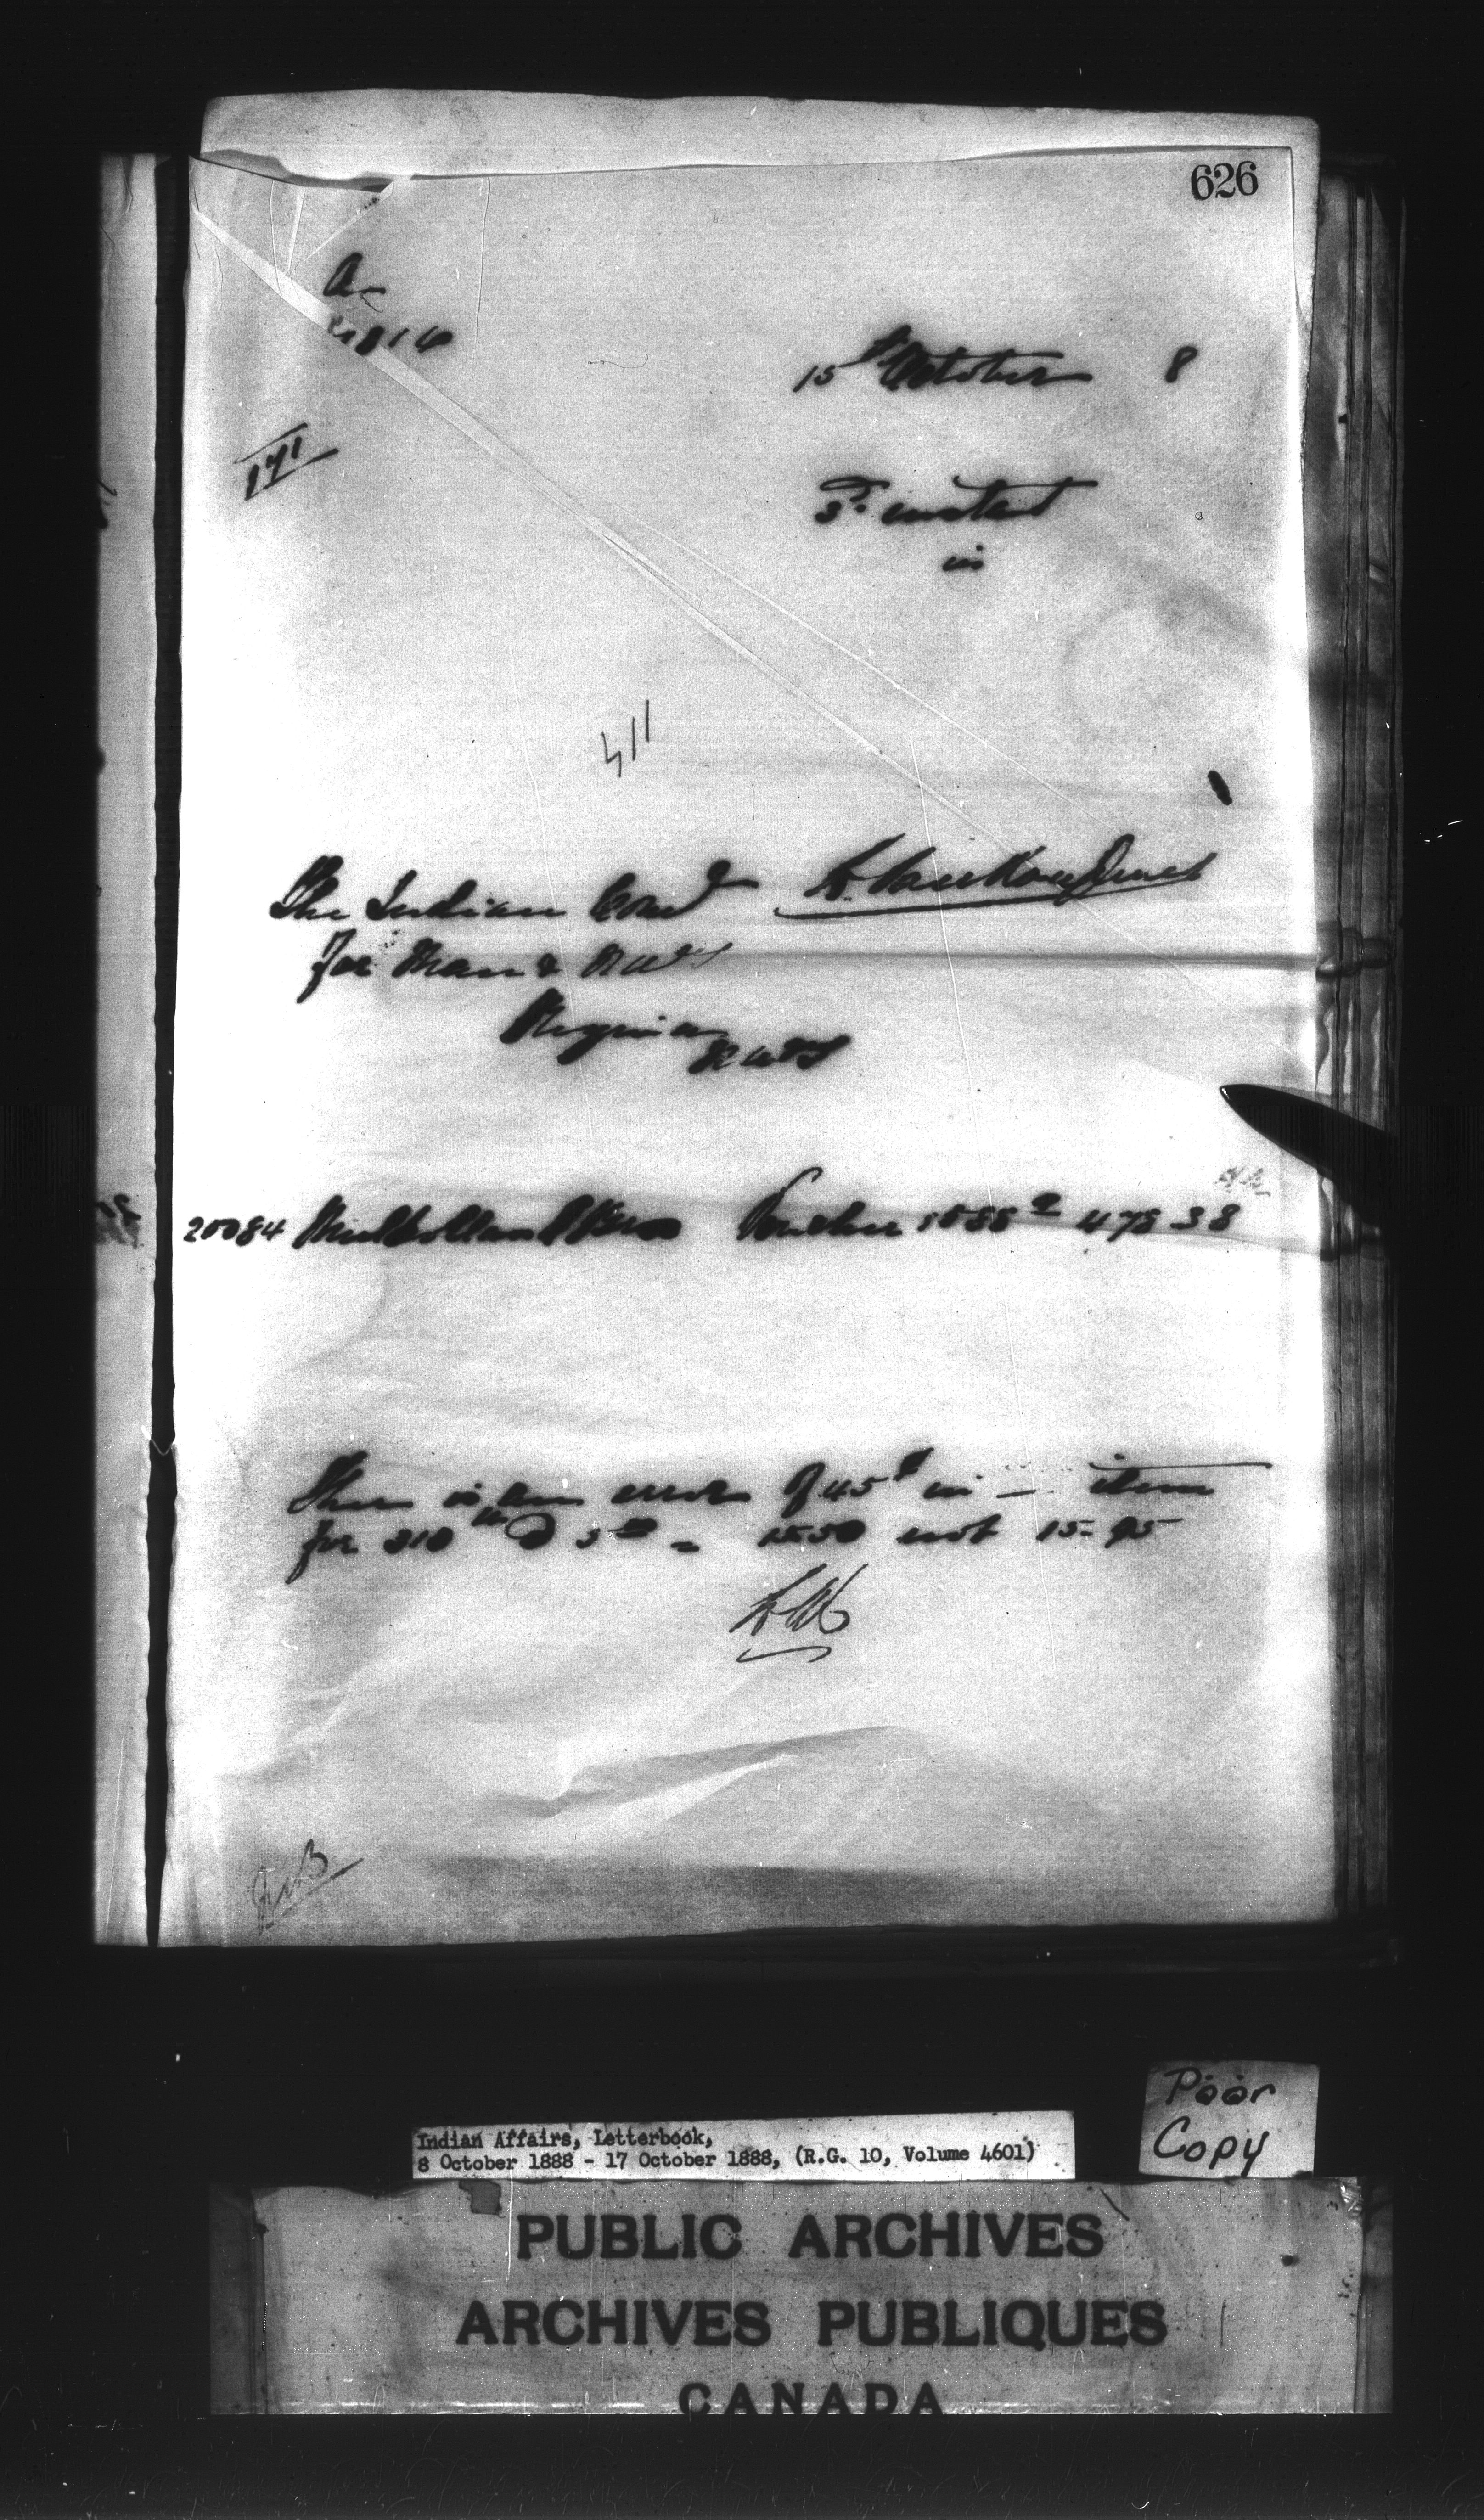 626
A
15th October 8
171
3rd instant
in
411
The Indian Comr L. Vankoughnet
for Man & N.W.T
Regina
N.W.T
20084 Mulholland Bros Voucher 478 38
There is an error of 45¢ in — item
for 310 lb @ 5 = 15.50 not 15.95
Poor
Copy
Indian Affairs, Letterbook,
8 October 1888 - 17 October 1888, (R.G. 10, Volume 4601)
PUBLIC ARCHIVES
ARCHIVES PUBLIQUES
CANADA